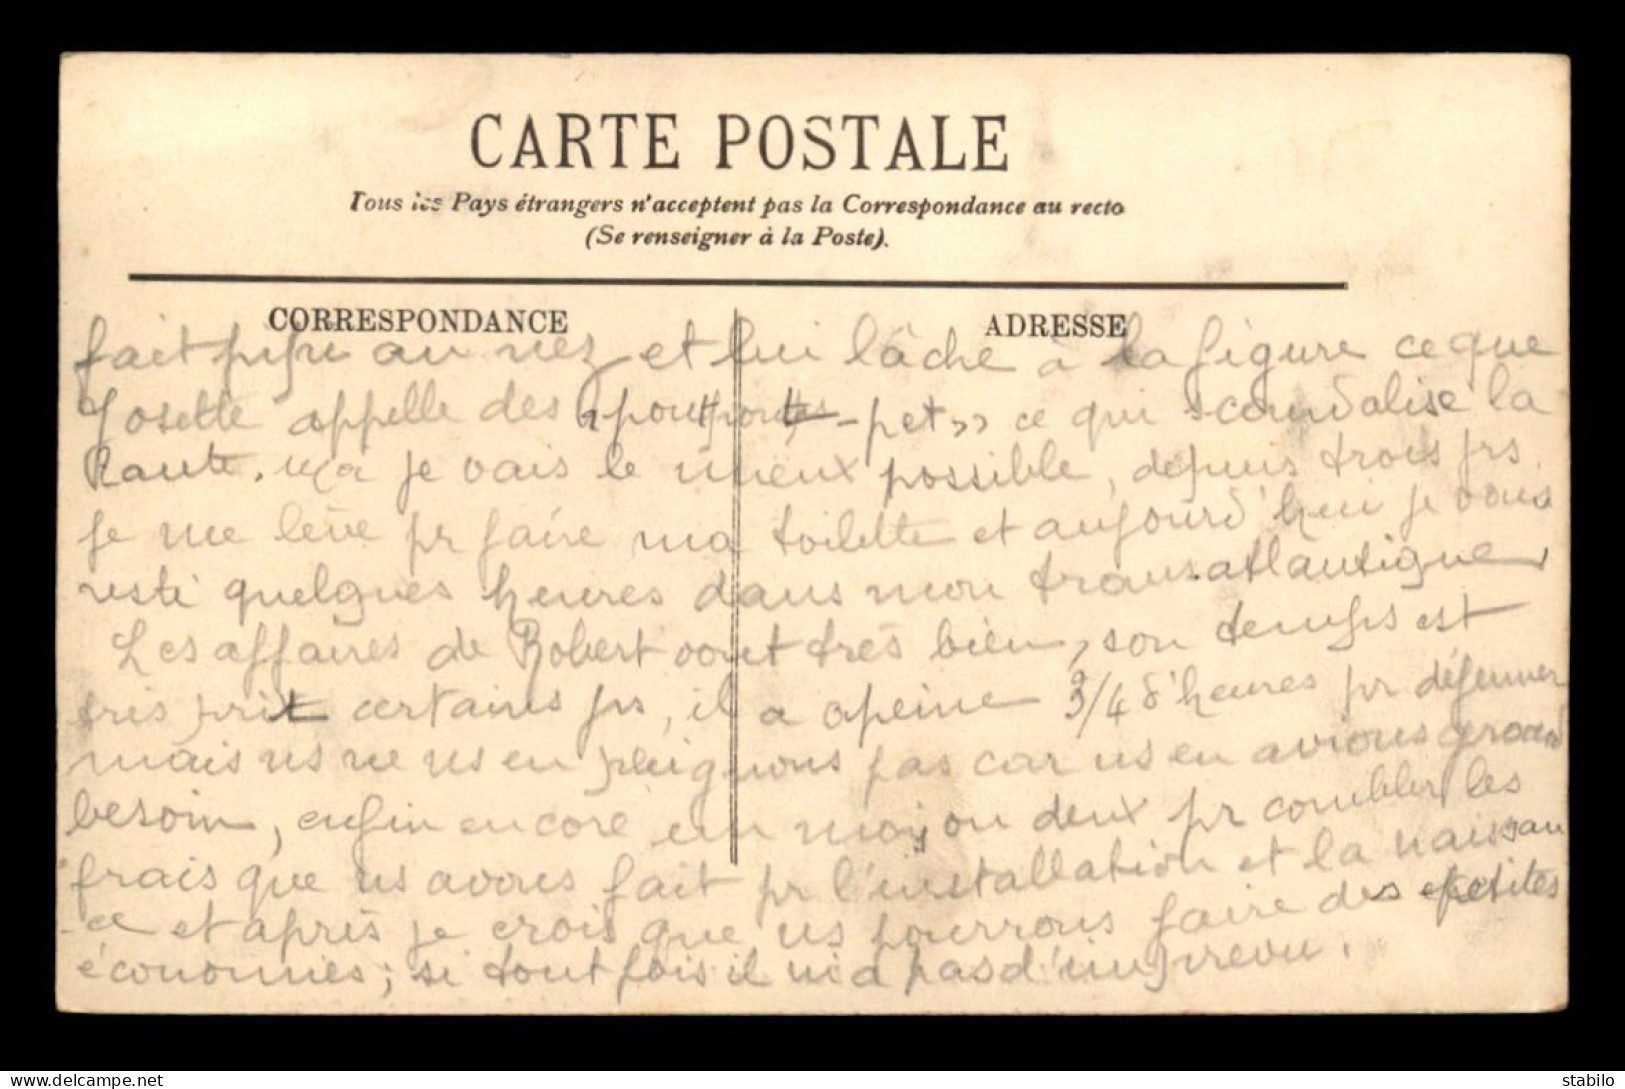 CARTE POSTALE
Tous les Pays étrangers n'acceptent pas la Correspondance au recto
(Se renseigner à la Poste).
CORRESPONDANCE
ADRESSE
fait pipi au nez et lui lâche à la figure ce que
Josette appelle des - pet" ce qui scandalise la
je vais le mieux possible, depuis trois jrs
je me lève pr faire ma toilette et aujourd'hui je vous
resté quelques heures dans mon transatlantique,
Les affaires de Robert vont très bien, son temps est
très prit certains jrs, il a apeine 3/4 d'heures pr déjeuner
mais ns ne ns en pleignons pas car ns en avions grand
besoin, enfin encore un mois ou deux pr combler les
frais que ns avons fait pr l'installation et la naissan
ce et après je crois que ns pourrons faire des petites
économies; si toutfois il n'y a pas d'imprevu.
stabilo
delcampe.net